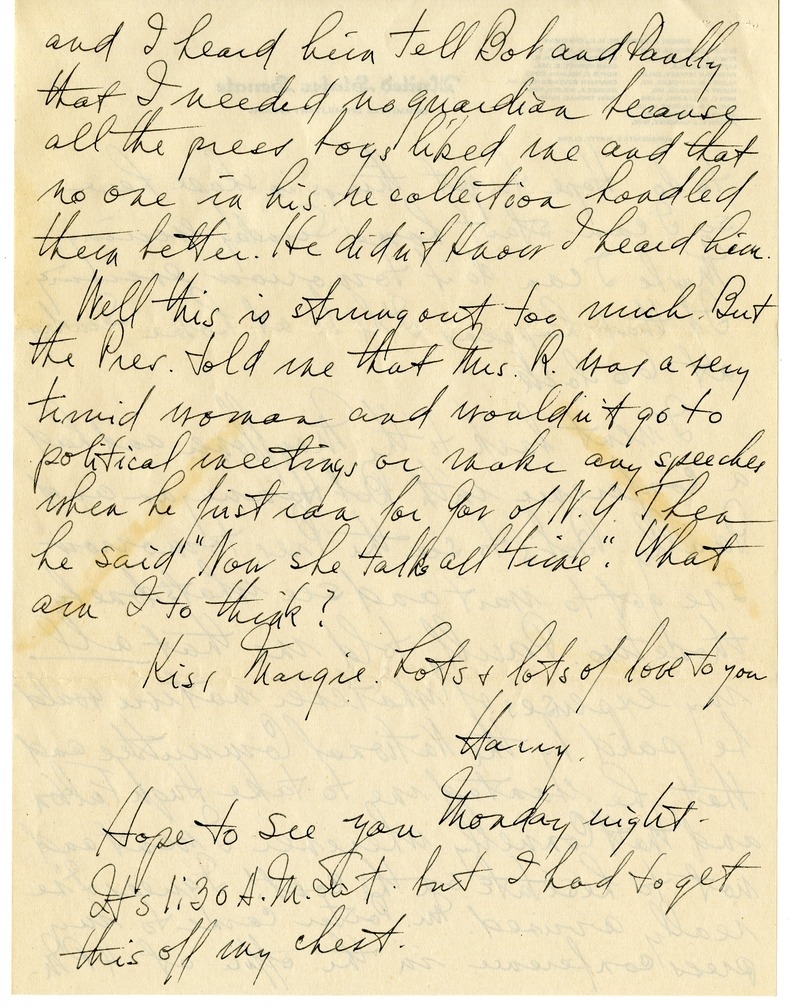 and I heard him tell Bob and Paully
that I needed no guardian because
all the press boys liked me and that
no one in his recollection handled
them better. He didn't know I heard him.
Well this is strung out too much. But
the Pres. told me that Mrs. R. was a very
timid woman and wouldn't go to
political meetings or make any speeches
when he first ran for Gov of N.Y. Then
he said "Now she talks all time". What
am I to think?
Kiss Margie. Lots & lots of love to you
Harry.
Hope to see you Monday night.
It's 1:30 A.M. Sat. but I had to get
this off my chest.